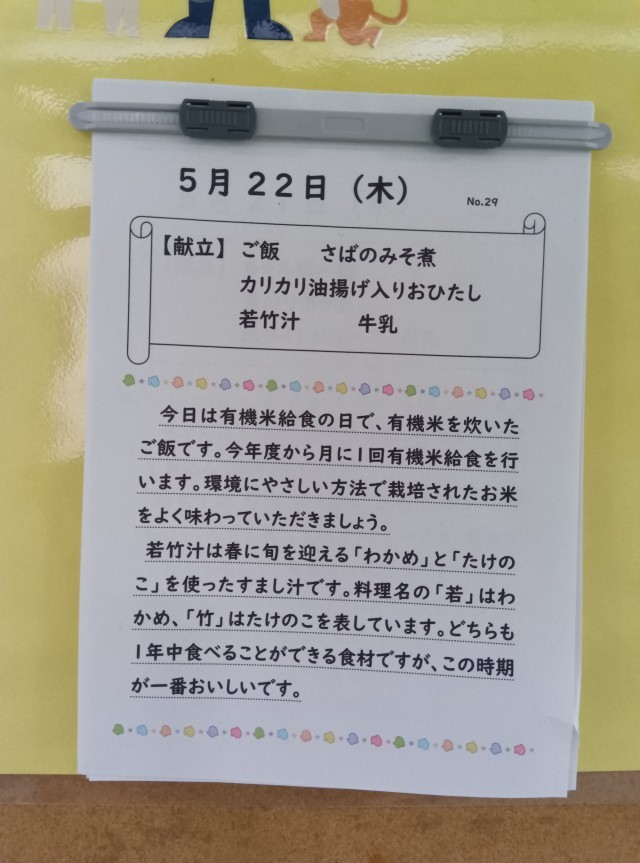 5月22日（木）
No.29
【献立】ご飯　さばのみそ煮
カリカリ油揚げ入りおひたし
若竹汁　牛乳
今日は有機米給食の日で、有機米を炊いた
ご飯です。今年度から月に1回有機米給食を行
います。環境にやさしい方法で栽培されたお米
をよく味わっていただきましょう。
若竹汁は春に旬を迎える「わかめ」と「たけの
こ」を使ったすまし汁です。料理名の「若」はわ
かめ、「竹」はたけのこを表しています。どちらも
1年中食べることができる食材ですが、この時期
が一番おいしいです。